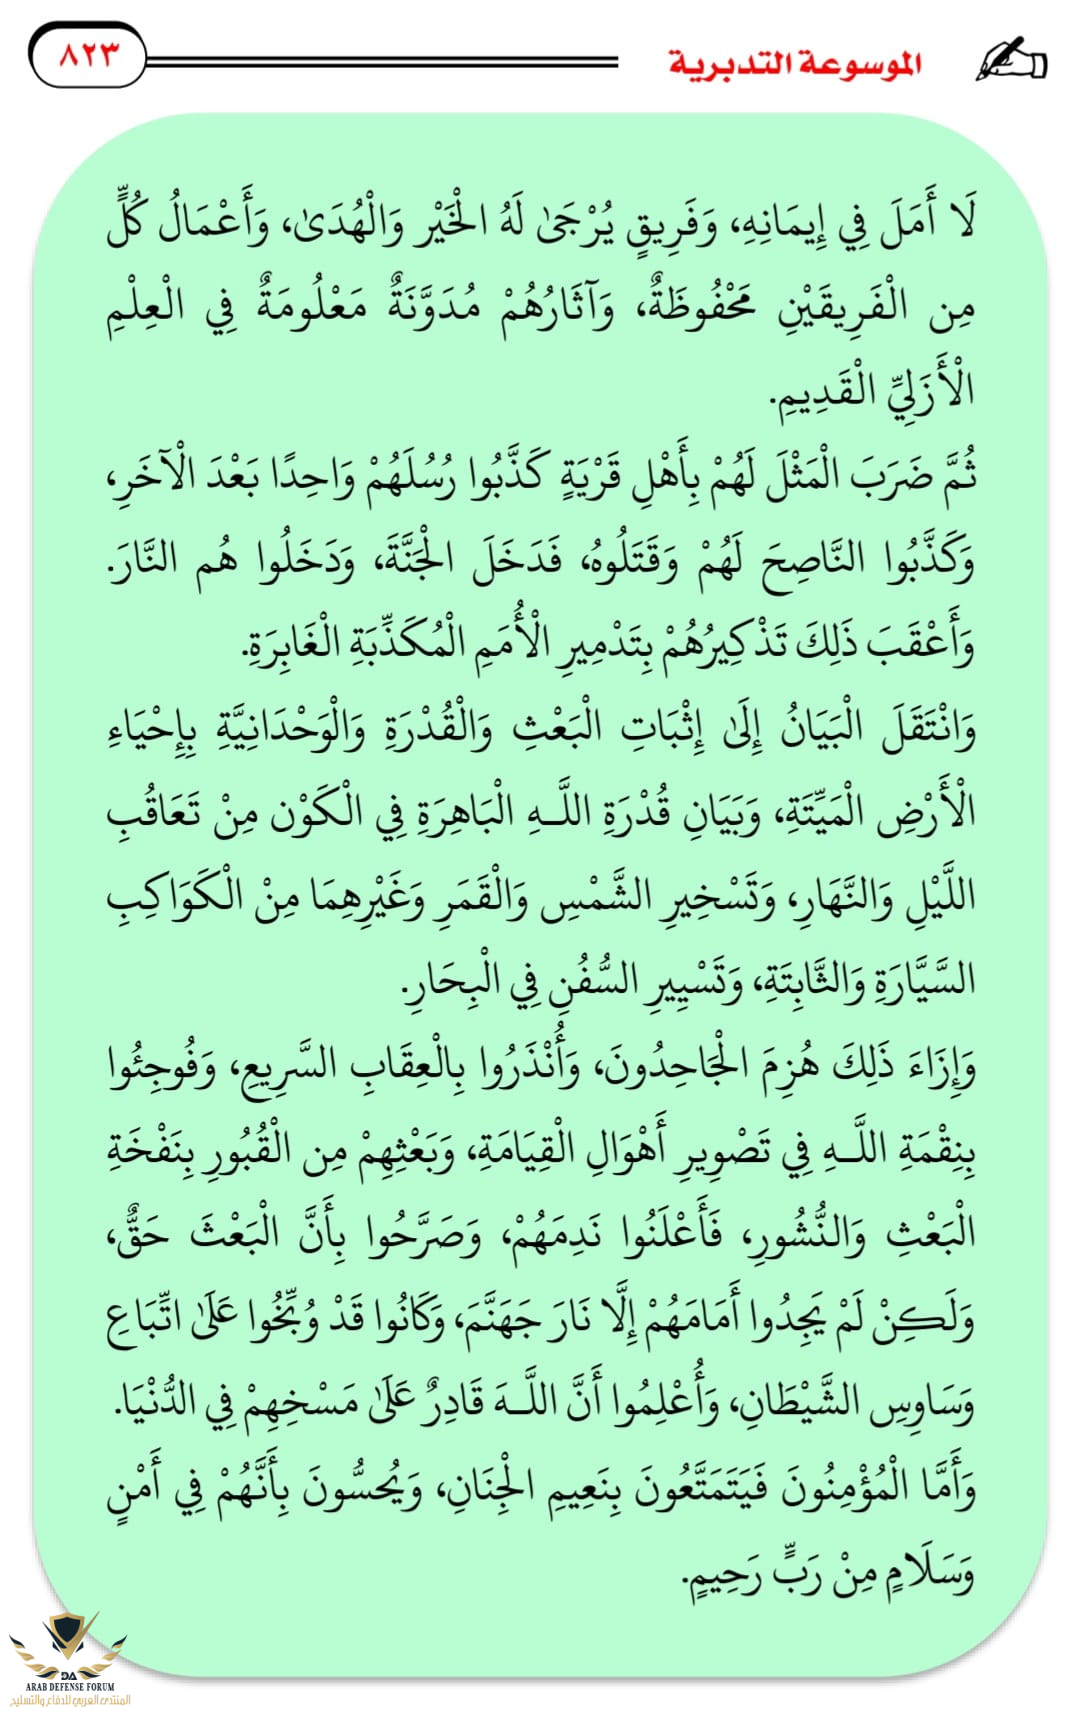 الموسوعة التدبرية
٨٢٣
لَا أَمَلَ فِي إِيمَانِهِ، وَفَرِيقٍ يُرْجَىٰ لَهُ الْخَيْر وَالْهُدَىٰ، وَأَعْمَالُ كُلٍّ
مِن الْفَرِيقَيْنِ مَحْفُوظَةٌ، وَآثَارُهُمْ مُدَوَّنَةٌ مَعْلُومَةٌ فِي الْعِلْمِ
الْأَزَلِيِّ الْقَدِيمِ.
ثُمَّ ضَرَبَ الْمَثْلَ لَهُمْ بِأَهْلِ قَرْيَةٍ كَذَّبُوا رُسُلَهُمْ وَاحِدًا بَعْدَ الْآخَرِ،
وَكَذَّبُوا النَّاصِحَ لَهُمْ وَقَتَلُوهُ، فَدَخَلَ الْجَنَّةَ، وَدَخَلُوا هُم النَّارَ.
وَأَعْقَبَ ذَلِكَ تَذْكِيرُهُمْ بِتَدْمِيرِ الْأُمَمِ الْمُكَذِّبَةِ الْغَابِرَةِ.
وَانْتَقَلَ الْبَيَانُ إِلَىٰ إِثْبَاتِ الْبَعْثِ وَالْقُدْرَةِ وَالْوَحْدَانِيَّةِ بِإِحْيَاءِ
الْأَرْضِ الْمَيِّتَةِ، وَبَيَانِ قُدْرَةِ اللَّـهِ الْبَاهِرَةِ فِي الْكَوْن مِنْ تَعَاقُبِ
اللَّيْلِ وَالنَّهَارِ، وَتَسْخِيرِ الشَّمْسِ وَالْقَمَرِ وَغَيْرِهِمَا مِنْ الْكَوَاكِبِ
السَّيَّارَةِ وَالثَّابِتَةِ، وَتَسْيِيرِ السُّفُنِ فِي الْبِحَارِ.
وَإِزَاءَ ذَلِكَ هُزِمَ الْجَاحِدُونَ، وَأُنْذَرُوا بِالْعِقَابِ السَّرِيعِ، وَفُوجِئُوا
بِنِقْمَةِ اللَّـهِ فِي تَصْوِيرِ أَهْوَالِ الْقِيَامَةِ، وَبَعْثِهِمْ مِن الْقُبُورِ بِنَفْخَةِ
الْبَعْثِ وَالنُّشُورِ، فَأَعْلَنُوا نَدِمَهُمْ، وَصَرَّحُوا بِأَنَّ الْبَعْثَ حَقٌّ،
وَلَكِنْ لَمْ يَجِدُوا أَمَامَهُمْ إِلَّا نَارَ جَهَنَّمَ، وَكَانُوا قَدْ وُبِّخُوا عَلَىٰ اتِّبَاعِ
وَسَاوِسِ الشَّيْطَانِ، وَأُعْلِمُوا أَنَّ اللَّـهَ قَادِرٌ عَلَىٰ مَسْخِهِمْ فِي الدُّنْيَا.
وَأَمَّا الْمُؤْمِنُونَ فَيَتَمَتَّعُونَ بِنَعِيمِ الْجِنَانِ، وَيُحسُّونَ بِأَنَّهُمْ فِي أَمْنٍ
وَسَلَامٍ مِنْ رَبٍّ رَحِيمٍ.
DA
ARAB DEFENSE FORUM
المنتدى العربي للدفاع والتسليح